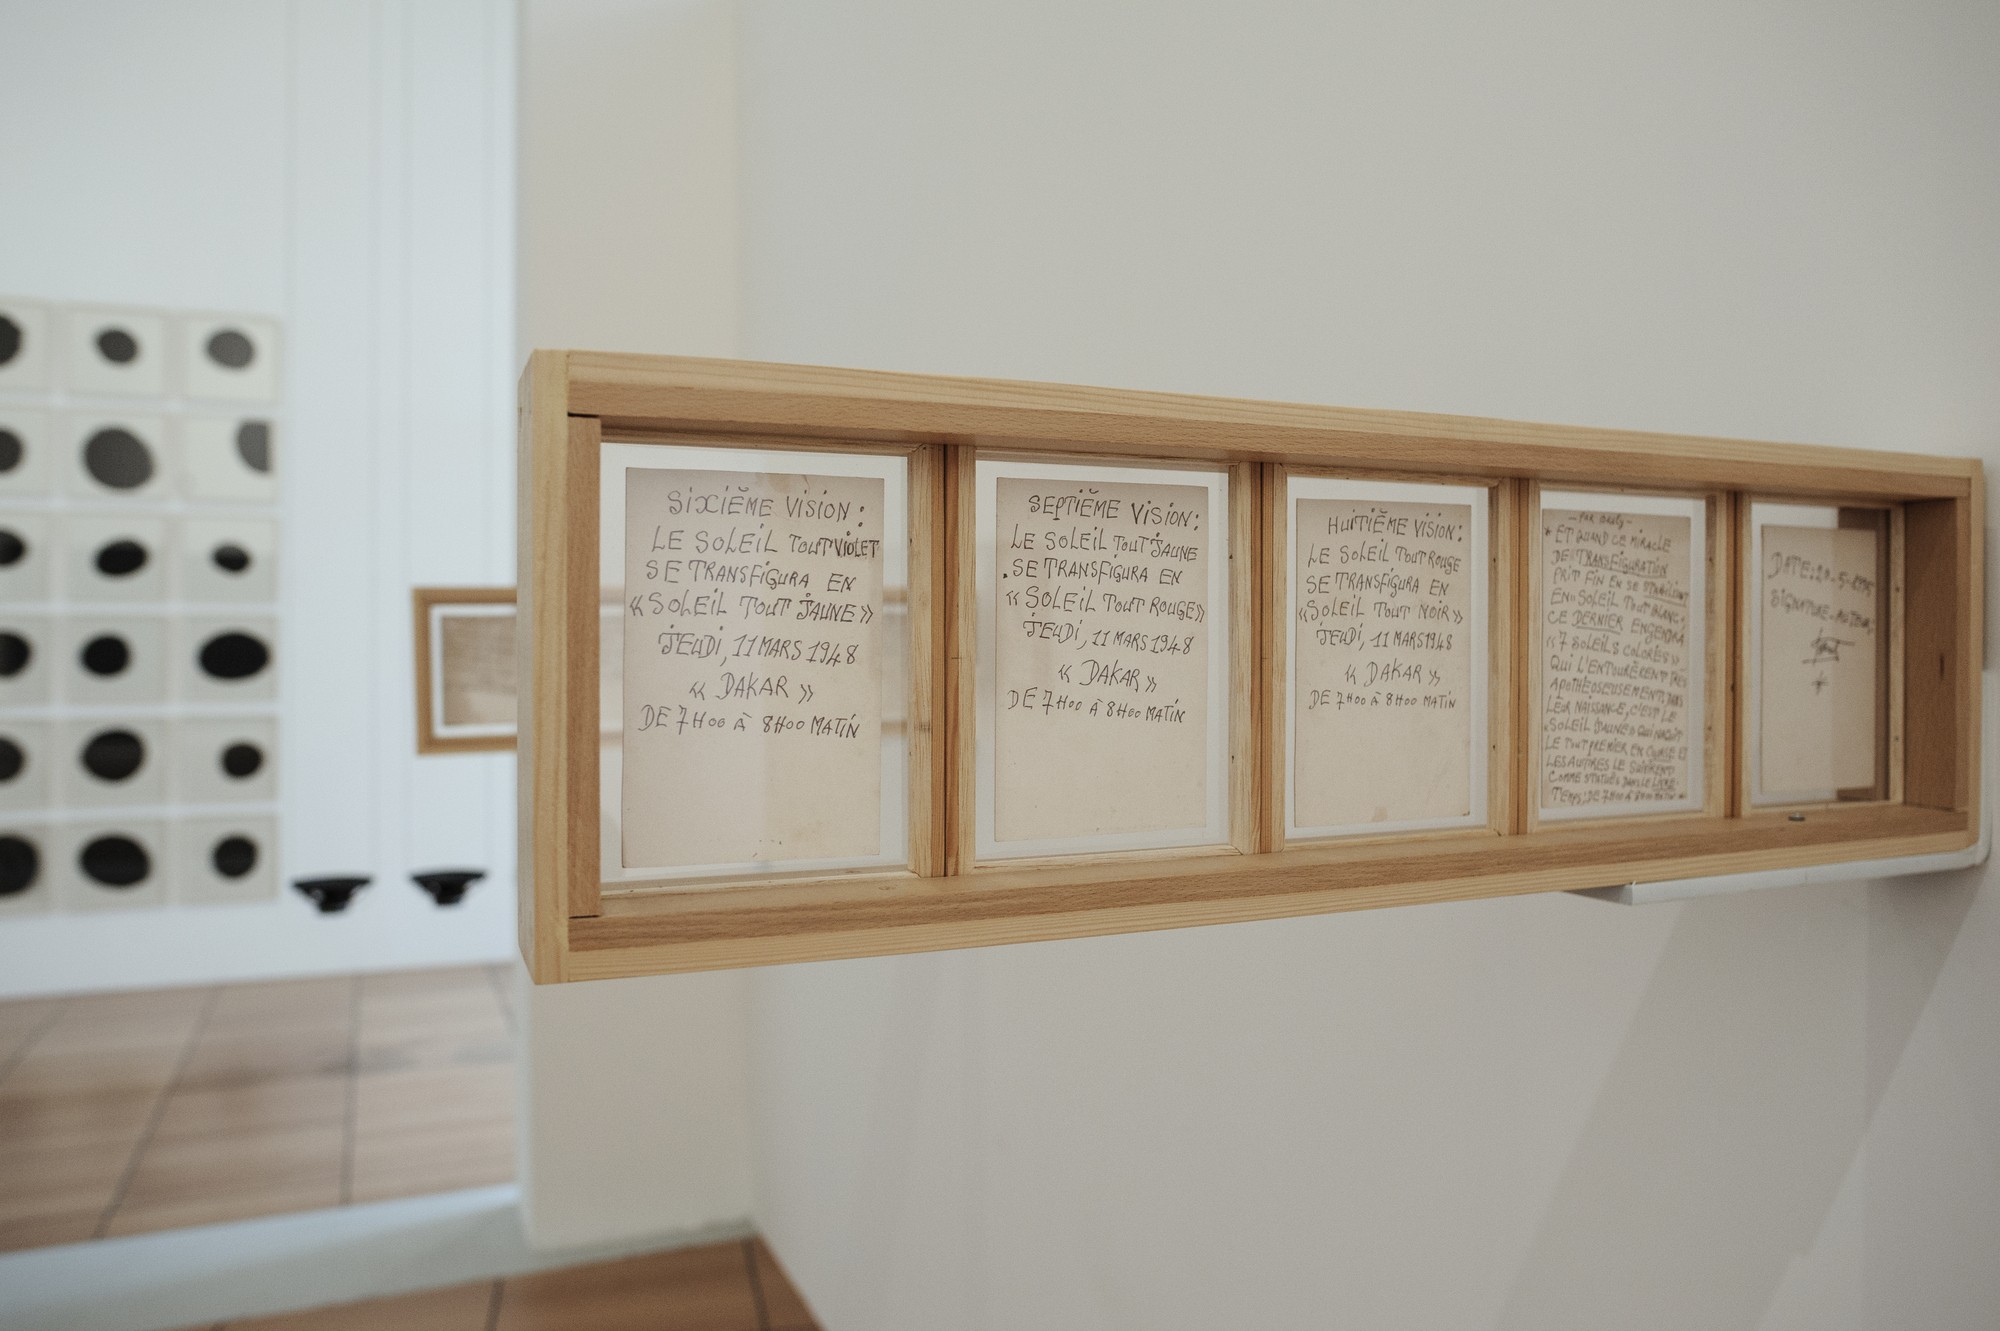 SIXIĔME VISION :
LE SOLEIL TOUT VIOLET
SE TRANSFIGURA EN
« SOLEIL TOUT JAUNE »
JEUDI, 11 MARS 1948
« DAKAR »
DE 7H00 À 8H00 MATIN
SEPTIĔME VISION :
LE SOLEIL TOUT JAUNE
SE TRANSFIGURA EN
« SOLEIL TOUT ROUGE »
JEUDI, 11 MARS 1948
« DAKAR »
DE 7H00 À 8H00 MATIN
HUITIĔME VISION :
LE SOLEIL TOUT ROUGE
SE TRANSFIGURA EN
« SOLEIL TOUT NOIR »
JEUDI, 11 MARS 1948
« DAKAR »
DE 7H00 À 8H00 MATIN
* ET QUAND CE MIRACLE
DE TRANSFIGURATION
PRIT FIN EN SE
EN « SOLEIL TOUT BLANC »,
CE DERNIER ENGENDRA
« 7 SOLEILS COLORÉS »
QUI L'ENTOURÈRENT TRÈS
APOTHÉOSEUSEMENT. DANS
LEUR NAISSANCE, C'EST LE
« SOLEIL JAUNE » QUI NAQUIT
LE TOUT PREMIER EN COURSE ET
LES AUTRES LE SUIVIRENT
COMME DANS LE
TEMPS : DE 7H00 À 8H00 MATIN
DATE :
SIGNATURE - AUTEUR :